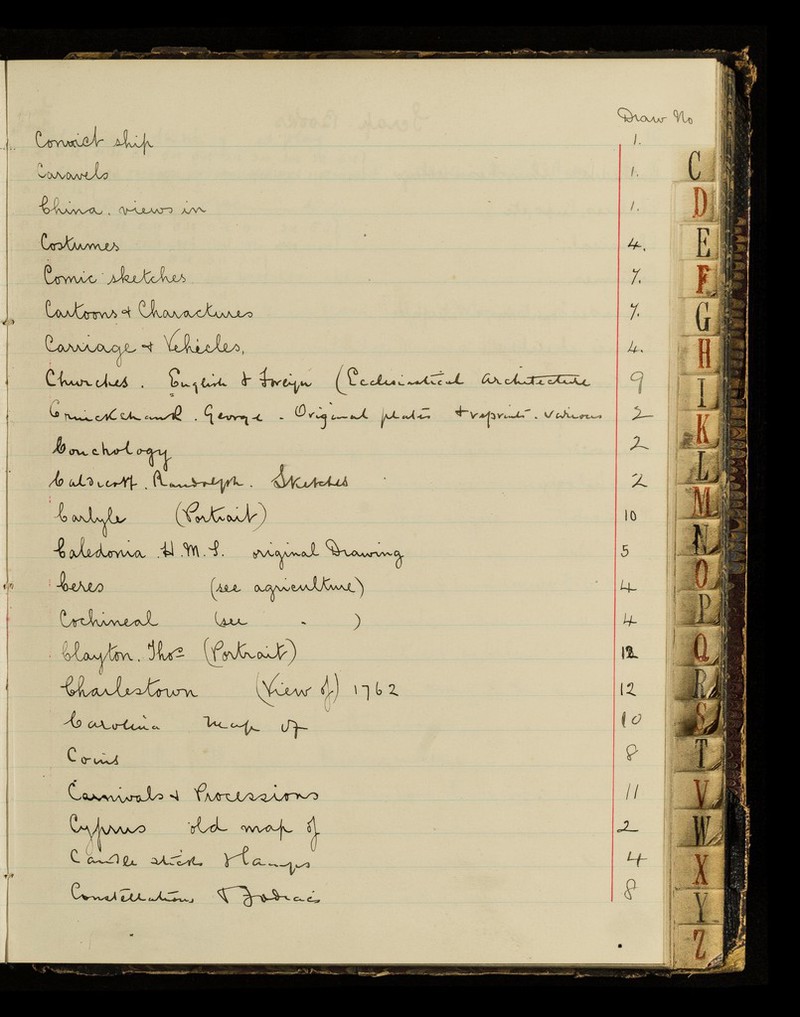 Draw No
Convict ship 1.
Caravels 1.
China. views in 1.
Costumes 4.
Comic sketches. 7.
Cartoons & Charactures 7.
Carriage & Vehicles, 4.
Churches. English & Foreign (Ecclesiastical Architecture 9
Cruickshank. George - Original plates & reprints. Various 2
Conchology 2
Caldicott. Randolph. Sketches 2
Carlyle (Portrait) 10
Caledonia. H.M.S. original Drawing 5
Ceres (see agriculture) 4
Cochineal (see - ) 4
Clayton. Thos (Portrait) 12
Charlestown (View of) 1762 12
Carolina Map of 10
Coins 8
Carnivals & Processions 11
Cyprus old map of 2
Candle sticks & Lamps 4
Constellations & Zodiacs 8
C
D
E
F
G
H
I
K
L
M
N
O
P
Q
R
S
T
V
W
X
Y
Z